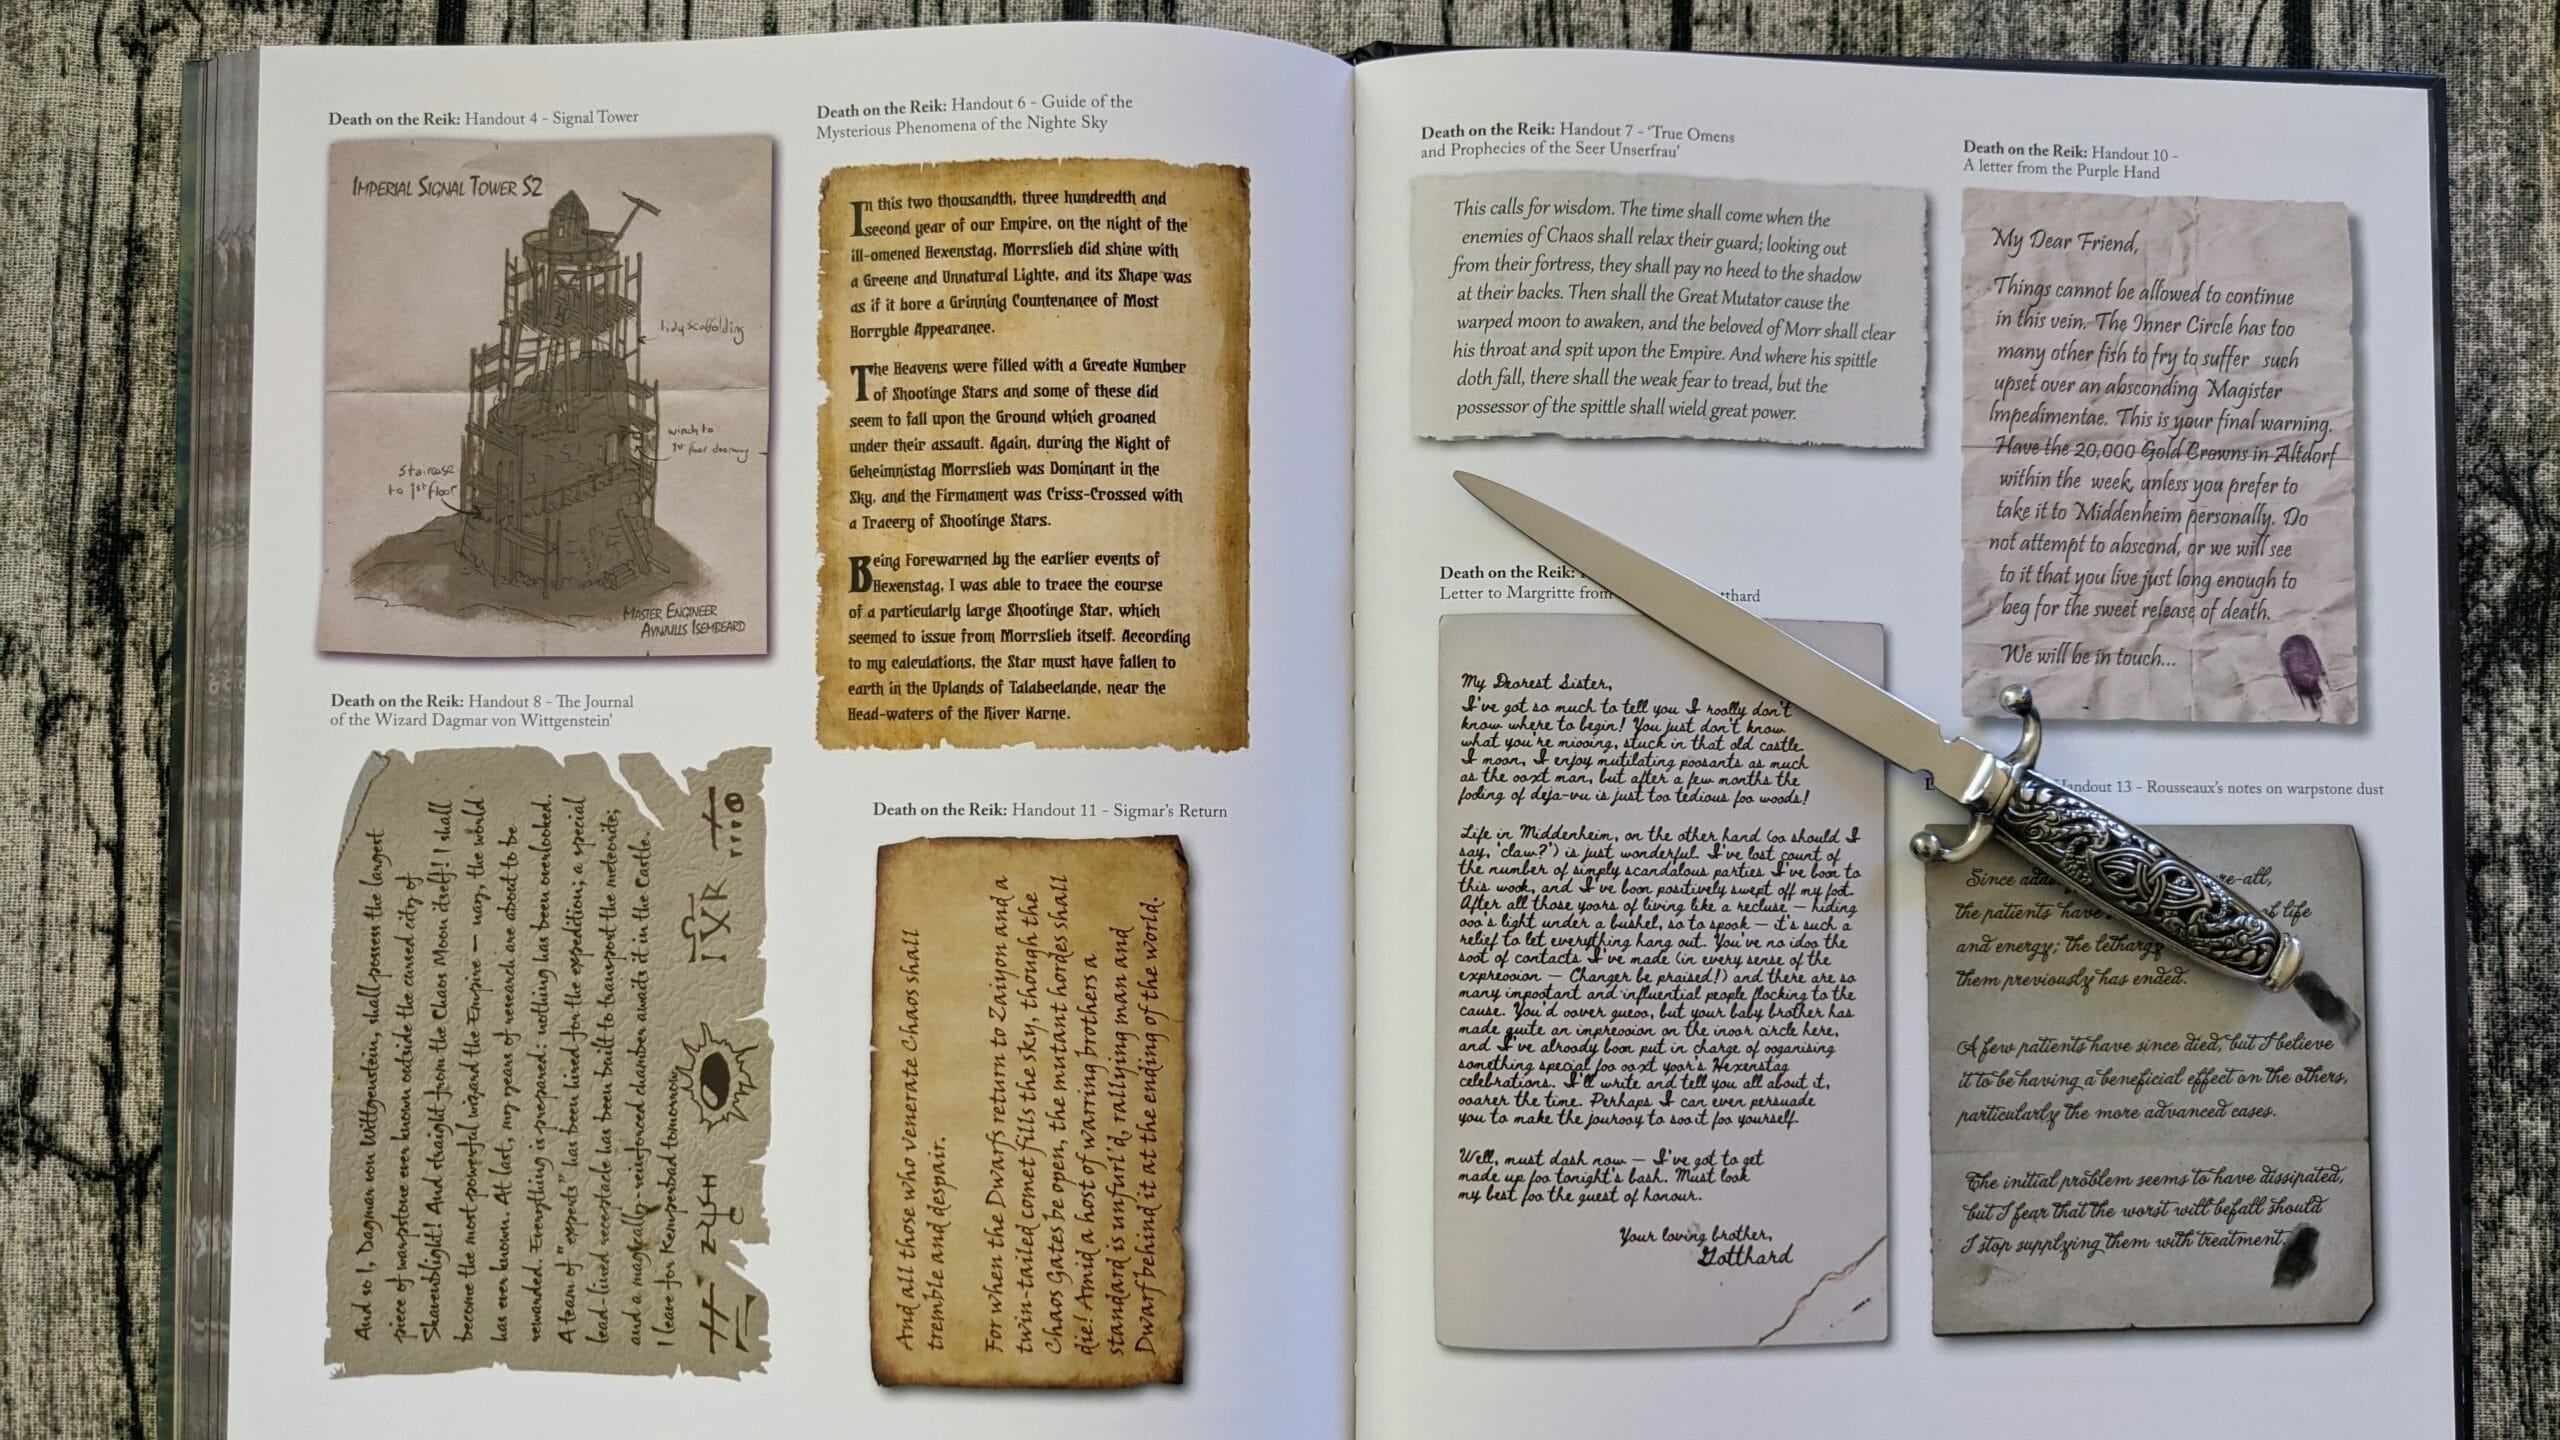 Death on the Reik: Handout 4 - Signal Tower
IMPERIAL SIGNAL TOWER S2
tidy scaffolding
winch to
1st floor doorway
staircase
to 1st floor
MASTER ENGINEER
AYNJULLS ISEMBEARD
Death on the Reik: Handout 6 - Guide of the
Mysterious Phenomena of the Nighte Sky
In this two thousandth, three hundredth and
second year of our Empire, on the night of the
ill-omened Hexenstag, Morrslieb did shine with
a Greene and Unnatural Lighte, and its Shape was
as if it bore a Grinning Countenance of Most
Horryble Appearance.
The Heavens were filled with a Greate Number
of Shootinge Stars and some of these did
seem to fall upon the Ground which groaned
under their assault. Again, during the Night of
Geheimnistag Morrslieb was Dominant in the
Sky, and the Firmament was Criss-Crossed with
a Tracery of Shootinge Stars.
Being Forewarned by the earlier events of
Hexenstag, I was able to trace the course
of a particularly large Shootinge Star, which
seemed to issue from Morrslieb itself. According
to my calculations, the Star must have fallen to
earth in the Uplands of Talabeclande, near the
Head-waters of the River Narne.
Death on the Reik: Handout 8 - The Journal
of the Wizard Dagmar von Wittgenstein'
And so I, Dagmar von Wittgenstein, shall possess the largest
piece of warpstone ever known outside the cursed city of
Skavenblight! And straight from the Chaos Moon itself! I shall
become the most powerful wizard the Empire – nay, the world
has ever known. At last, my years of research are about to be
rewarded. Everything is prepared: nothing has been overlooked.
A team of "experts" has been hired for the expedition; a special
lead-lined receptacle has been built to transport the meteorite;
and a magically-reinforced chamber awaits it in the Castle.
I leave for Kemperbad tomorrow
Death on the Reik: Handout 11 - Sigmar's Return
And all those who venerate Chaos shall
tremble and despair.
For when the Dwarfs return to Zaiyon and a
twin-tailed comet fills the sky, though the
Chaos Gates be open, the mutant hordes shall
die! Amid a host of warring brothers a
standard is unfurl'd, rallying man and
Dwarf behind it at the ending of the world.
Death on the Reik: Handout 7 - 'True Omens
and Prophecies of the Seer Unserfrau'
This calls for wisdom. The time shall come when the
enemies of Chaos shall relax their guard; looking out
from their fortress, they shall pay no heed to the shadow
at their backs. Then shall the Great Mutator cause the
warped moon to awaken, and the beloved of Morr shall clear
his throat and spit upon the Empire. And where his spittle
doth fall, there shall the weak fear to tread, but the
possessor of the spittle shall wield great power.
Death on the Reik: Handout 10 -
A letter from the Purple Hand
My Dear Friend,
Things cannot be allowed to continue
in this vein. The Inner Circle has too
many other fish to fry to suffer such
upset over an absconding Magister
Impedimentae. This is your final warning.
Have the 20,000 Gold Crowns in Altdorf
within the week, unless you prefer to
take it to Middenheim personally. Do
not attempt to abscond, or we will see
to it that you live just long enough to
beg for the sweet release of death.
We will be in touch...
Death on the Reik:
Letter to Margritte from
My Dearest Sister,
I've got so much to tell you I really don't
know where to begin! You just don't know
what you're missing, stuck in that old castle.
I mean, I enjoy mutilating peasants as much
as the next man, but after a few months the
feeling of deja-vu is just too tedious for words!
Life in Middenheim, on the other hand (or should I
say, 'claw?') is just wonderful. I've lost count of
the number of simply scandalous parties I've been to
this week, and I've been positively swept off my feet.
After all those years of living like a recluse – hiding
one's light under a bushel, so to speak – it's such a
relief to let everything hang out. You've no idea the
sort of contacts I've made (in every sense of the
expression – Changer be praised!) and there are so
many important and influential people flocking to the
cause. You'd never guess, but your baby brother has
made quite an impression on the inner circle here,
and I've already been put in charge of organising
something special for next year's Hexenstag
celebrations. I'll write and tell you all about it,
nearer the time. Perhaps I can even persuade
you to make the journey to see it for yourself.
Well, must dash now – I've got to get
made up for tonight's bash. Must look
my best for the guest of honour.
Your loving brother,
Gotthard
Handout 13 - Rousseaux's notes on warpstone dust
Since
the patients have of life
and energy; the lethargy
them previously has ended.
A few patients have since died, but I believe
it to be having a beneficial effect on the others,
particularly the more advanced cases.
The initial problem seems to have dissipated,
but I fear that the worst will befall should
I stop supplying them with treatment.